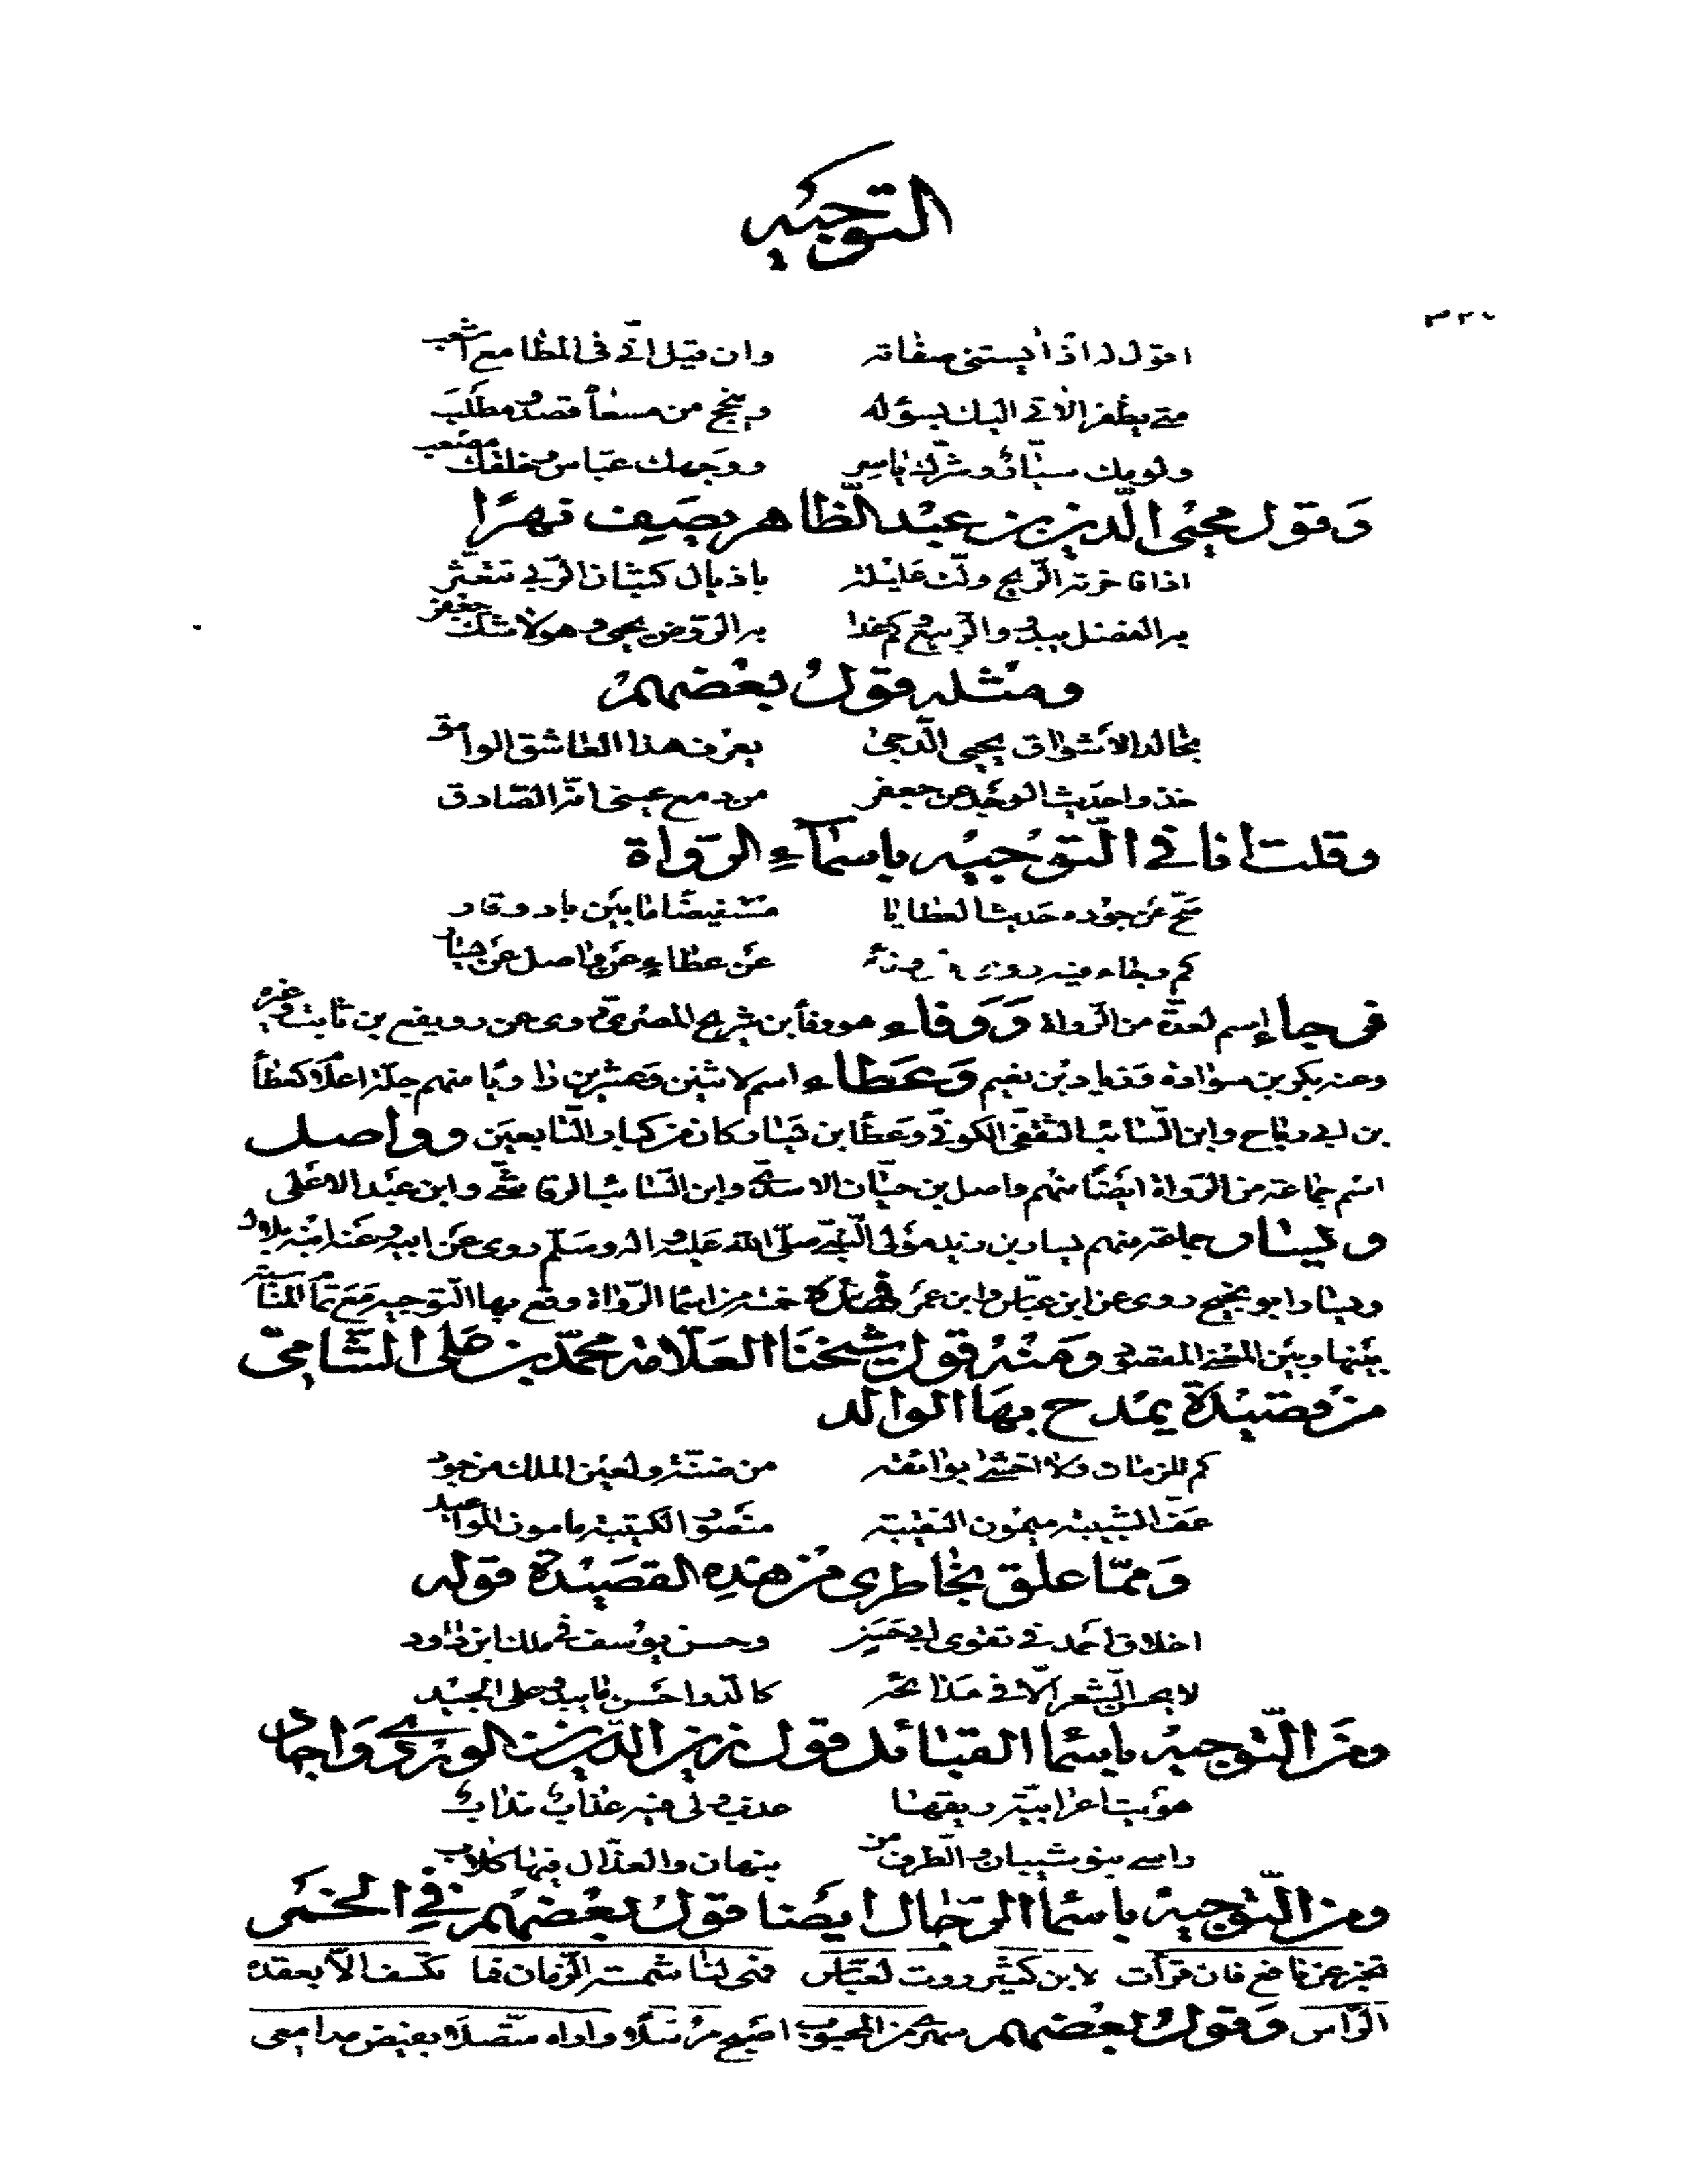 التوجيه
اقول له اذ ايستني صفاته وان قيل اني في المطامع اشعب
متى يظفر الاتي اليك بسؤله وينجح من مسعاه قصد ومطلب
ولومك سيّار وشرّك ياسر ووجهك عبّاس وخلفك مصعب
وقول محيى الدين بن عبد الظاهر يصف نهرًا
اذا فاخرته الريح ولّت عليلة باذيال كثبان الربى تتعثر
به الفضل يبدو والربيع وكم غدا به الروض يحيى وهو لا شك جعفر
ومثله قول بعضهم
بخالد الاشواق يحيى الدجى يعرف هذا العاشق الوامق
خذوا حديث الوجد عن جعفر من دمع عيني انه الصادق
وقلت انا في التوجيه باسماء الرواة
صح عن جوده حديث العطايا مستفيضا ما بين باد وقار
كم رجاء فيه عن عطاء عن واصل عن يسار
فرجاء إسم لعدة من الرواة ووفاء هو وفا بن شريح المصري روى عن رويفع بن ثابت وغيره
وعنه بكر بن سوادة وزياد بن نعيم وعطاء اسم لاثنين وعشرين راويا منهم جلة اعلام كعطا
بن ابي رباح وابن السائب الثقفي الكوفي وعطا بن يسار وكان من كبار التابعين وواصل
اسم جماعة من الرواة ايضًا منهم واصل بن حيّان الاسدي وابن السائب الرقاشي وابن عبد الاعلى
ويسار جماعة منهم يسار بن زيد مولى النبي صلى الله عليه وآله وسلم روى عن ابيه وعنه ابنه بلال
ويسار ابو نجيح روى عن ابن عباس وابن عمر فهذه خمسة من اسما الرواة وقع بها التوجيه مع تمام المناسبة
بينها وبين المعنى المقصود ومنه قول شيخنا العلامة محمد بن على الشامي
من قصيدة يمدح بها الوالد
كم للزمان ولا اخشى بوائقه من ضنة ولعين الملك من جود
عف الشبيبة ميمون النقيبة منصور الكتيبة مامون المواعيد
ومما علق بخاطري من هذه القصيدة قوله
اخلاق احمد في تقوى ابي حسن وحسن يوسف في ملك ابن داود
لا يحسن الشعر الا في مدائحه كالدر احسن ما يبدو على الجيد
ومن التوجيه باسما القبائل قول زين الدين بن الوردي واجاد
هويت اعرابية ريقها عذب ولى فيه عذاب مذاب
راسي بنو شيبان والطرف من نبهان والعذال فيها كلاب
ومن التوجيه باسما الرجال ايضا قول بعضهم في الخمر
تخبر عن نافع فان قرأت لابن كثير روت لعباس فهى لنا شمسة الزمان فما تكسف الا بعقده
الراس وقول بعضهم سهري من المحبوب اصبح مرسلا واراه متصلا بفيض مدامعي